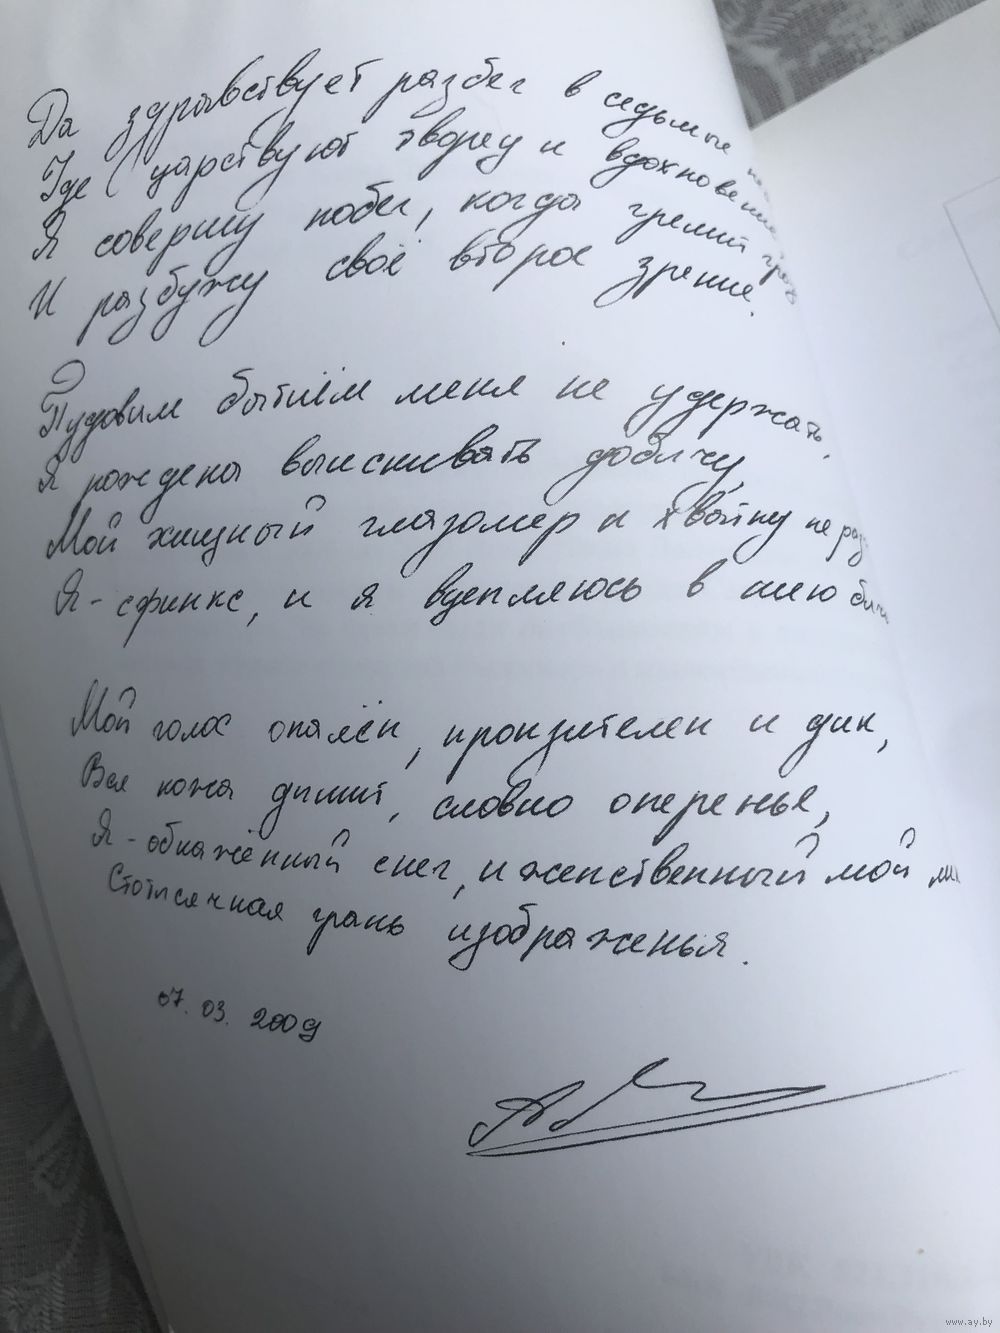 Да здравствует разбег в седьмые
Где царствуют творец и вдохновенье
Я совершу побег, когда гремит гроз
И разбужу своё второе зрение.
Пудовым бытиём меня не удержать.
Я рождена выискивать добычу,
Мой хищный глазомер и хвойну не раз
Я - сфинкс, и я вцепляюсь в шею
Мой голос опалён, пронзителен и дик,
Вся кожа дымит, словно оперенье,
Я - обнажённый снег, и женственный мой
Стотысячная грань изображенья.
07.03.2009
www.ay.by